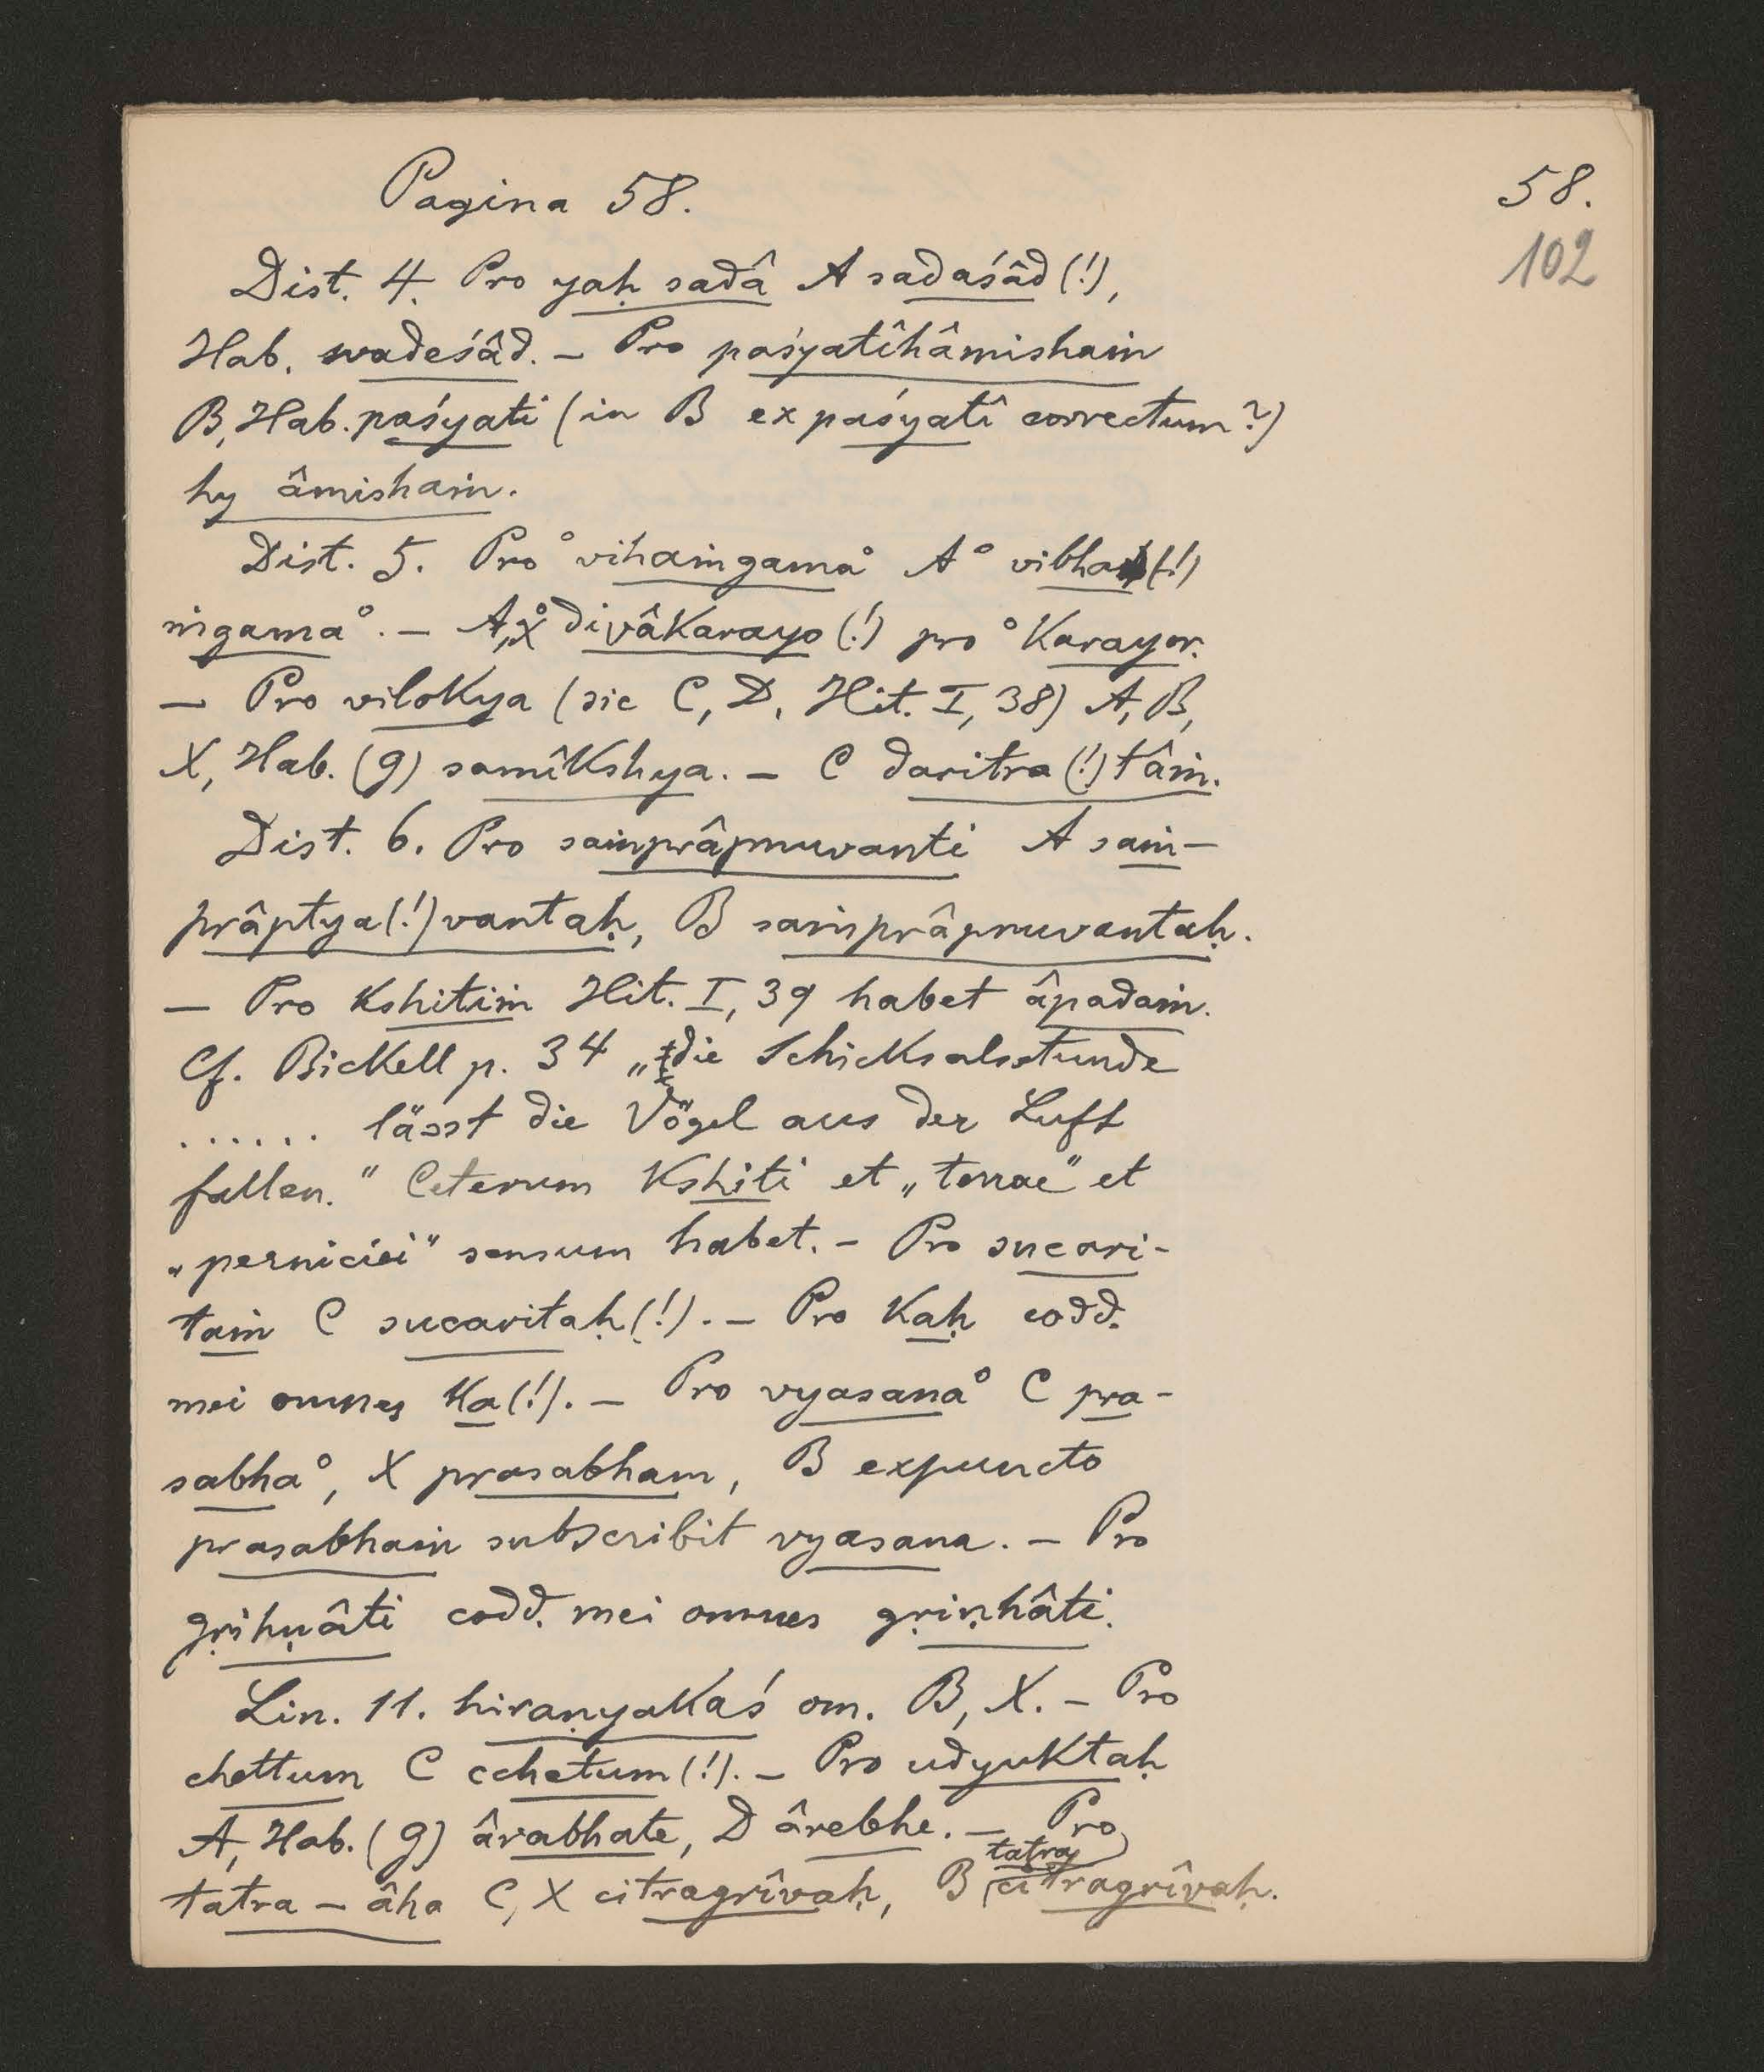 Pagina 58.
58.
102
Dist. 4. Pro yaḥ sadâ A sadaśâd (!),
Hab. svadeśâd. – Pro paśyatîhâmishaṁ
B, Hab. paśyati (in B ex paśyatî correctum?)
hy âmishaṁ.
Dist. 5. Pro °vihaṁgama° A °vibha(!)
ṁgama°. – A, X °divâkarayo (!) pro °karayor.
– Pro vilokya (sic C, D, Hit. I, 38) A, B,
X, Hab. (9) samîkshya. – C daritra (!) tâṁ.
Dist. 6. Pro saṁprâpnuvanti A saṁ-
prâptya (!) vantaḥ, B saṁprâpnuvantaḥ.
– Pro kshitiṁ Hit. I, 39 habet âpadaṁ.
Cf. Bickell p. 34 „die Schicksalsstunde
...... lässt die Vögel aus der Luft
fallen.“ Ceterum kshiti et „terrae“ et
„perniciei“ sensum habet. – Pro sucari-
taṁ C sucaritaḥ (!). – Pro kaḥ codd.
mei omnes ka (!). – Pro vyasana° C pra-
sabha°, X prasabham, B expuncto
prasabhaṁ subscribit vyasana. – Pro
gṛihṇâti codd. mei omnes gṛiṇhâti.
Lin. 11. hiraṇyakaś om. B, X. – Pro
chettum C cchetum (!). – Pro udyuktaḥ
A, Hab. (9) ârabhate, D ârebhe. – Pro
tatra
tatra – âha C, X citragrîvaḥ, B citragrîvaḥ.